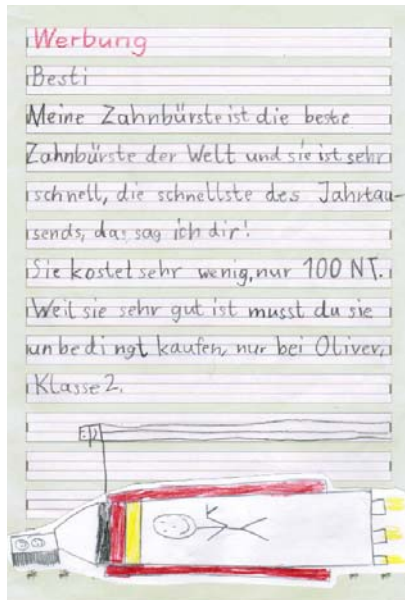 Werbung
Besti
Meine Zahnbürste ist die beste
Zahnbürste der Welt und sie ist sehr
schnell, die schnellste des Jahrtau-
sends, das sag ich dir!
Sie kostet sehr wenig, nur 100 NT.
Weil sie sehr gut ist musst du sie
unbedingt kaufen, nur bei Oliver,
Klasse 2.